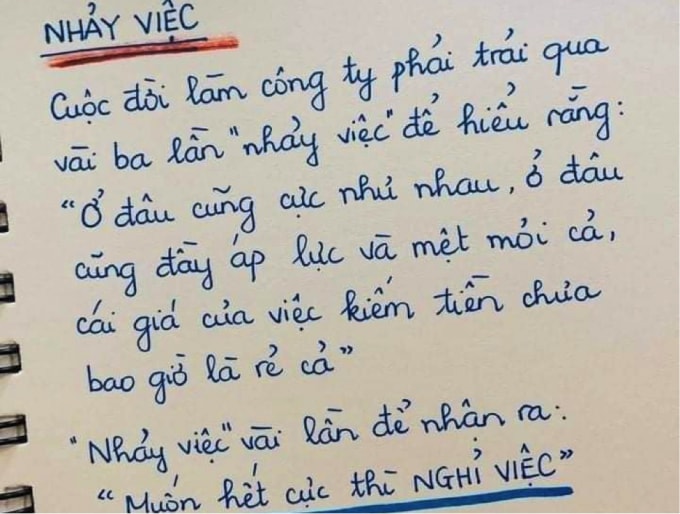 NHẢY VIỆC
Cuộc đời làm công ty phải trải qua
vài ba lần "nhảy việc" để hiểu rằng:
"Ở đâu cũng cực như nhau, ở đâu
cũng đầy áp lực và mệt mỏi cả,
cái giá của việc kiếm tiền chưa
bao giờ là rẻ cả"
"Nhảy việc" vài lần để nhận ra:
"Muốn hết cực thì NGHỈ VIỆC"